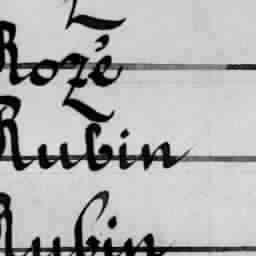 Rozé
Rubin
Rubin